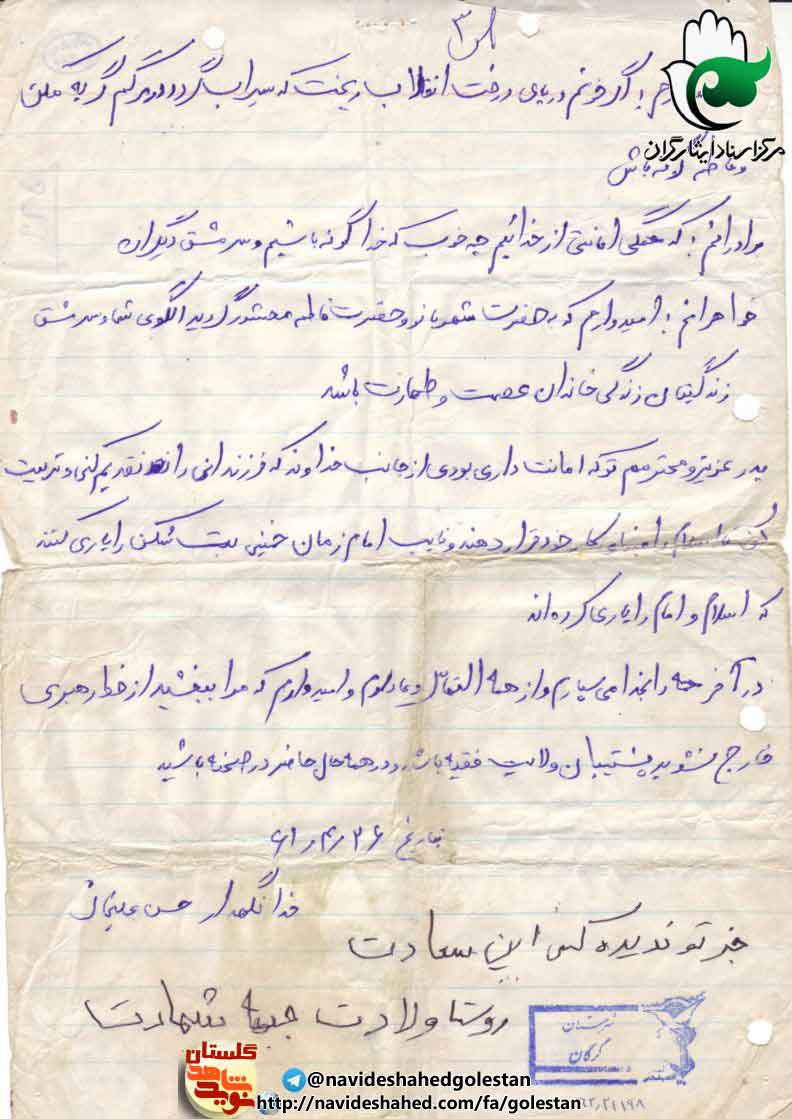 ص ۳
اگر خونم در پای درخت انقلاب ریخت که سیراب گردد در مرگم گریه مکن
مرکز اسناد ایثارگران
و باش
برادرانم! که همگی امانتی از خدائیم چه خوب که خدا گونه باشیم و سرمشق دیگران
خواهرانم! امیدوارم که به حضرت شهربانو و حضرت فاطمه محشور گردید الگوی شما و سرمشق
زندگیتان زندگی خاندان عصمت و طهارت باشد
پدر عزیز و محترمم تو که امانت داری بودی از جانب خداوند که فرزندانی را تقدیم کنی و تربیت
کنی اسلام را کار خود قرار دهند و نایب امام زمان خمینی بت شکن را یاری کنند
که اسلام و امام را یاری کرده اند
در آخر همه را بخدا می سپارم و از همه التماس دعا دارم و امیدوارم که مرا ببخشید از خط رهبری
خارج نشوید پشتیبان ولایت فقیه باشید و در همه حال حاضر در صحنه باشید
بتاریخ ۲۶ ر ۴ ر ۶۱
خدا نگهدار حسن
جز تو ندیده کس این سعادت
روستا ولادت جبهه شهادت
گرگان
گلستان
نوید شاهد
@navideshahedgolestan
http://navideshahed.com/fa/golestan